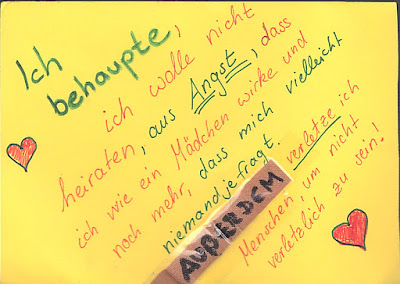 Ich
behaupte,
ich wolle nicht
heiraten, aus Angst, dass
ich wie ein Mädchen wirke und
noch mehr, dass mich vielleicht
niemand je fragt.
AUßERDEM
verletze ich
Menschen, um nicht
verletzlich zu sein!